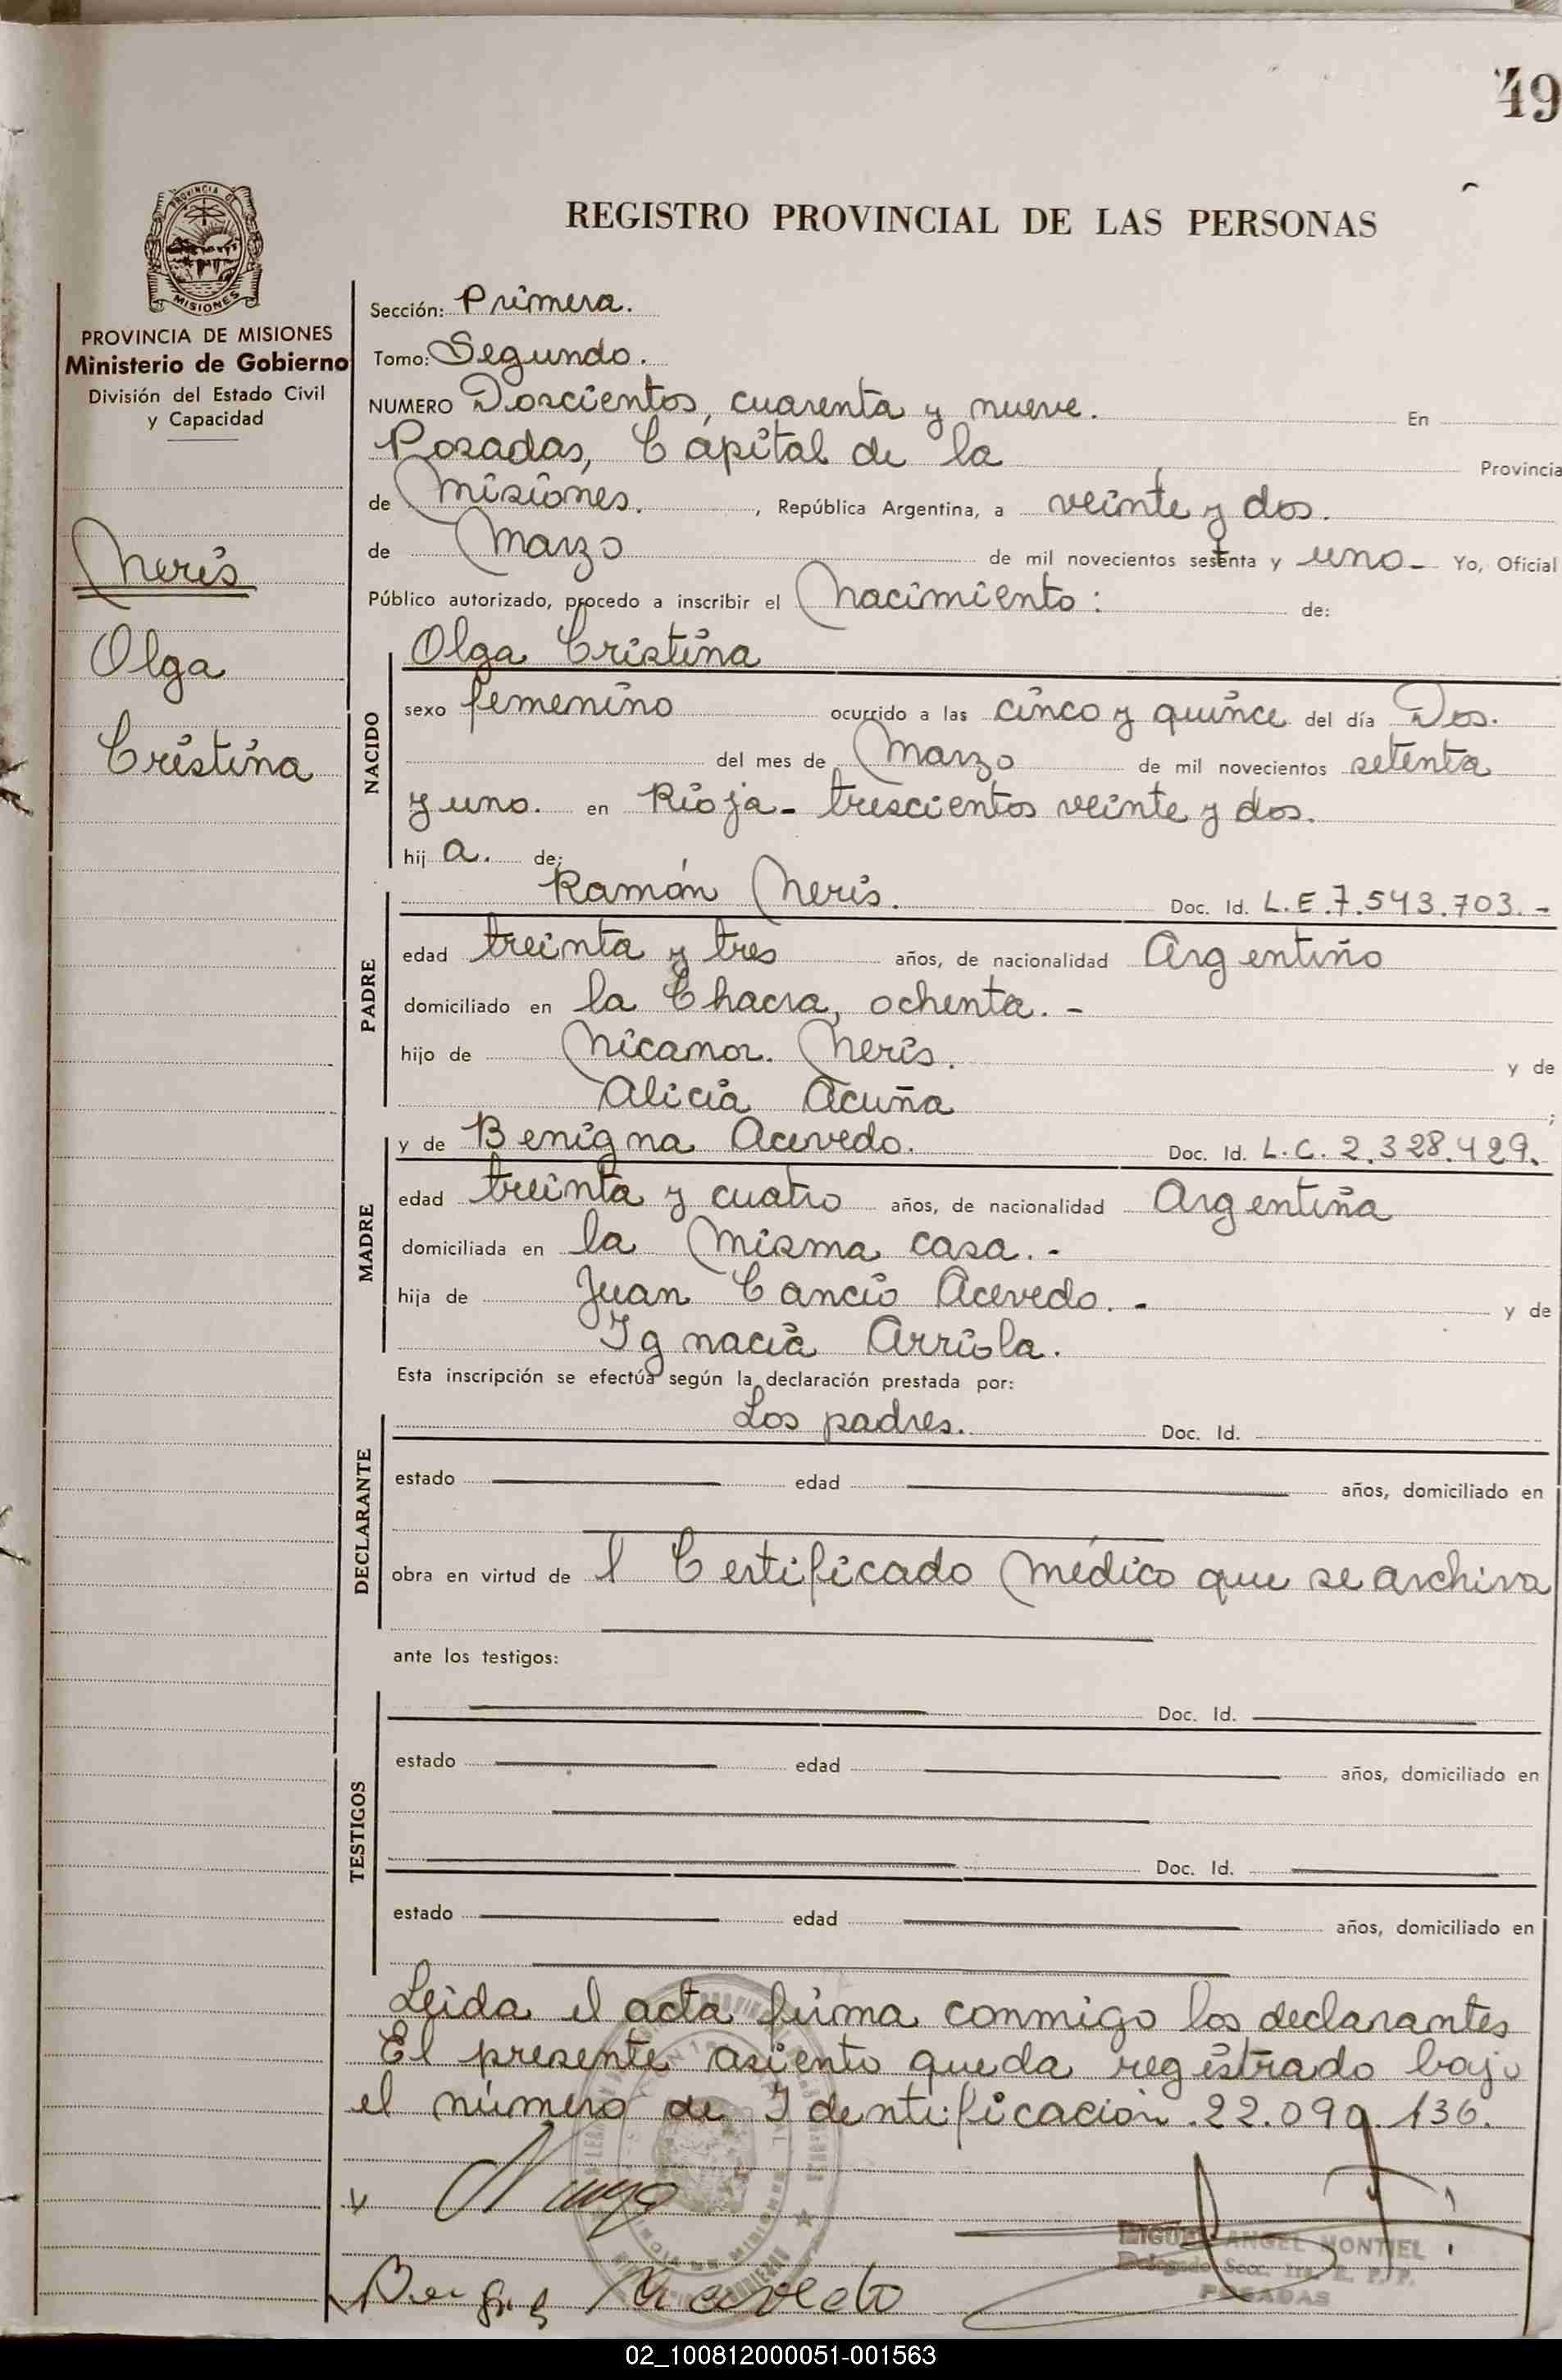 49
PROVINCIA DE
MISIONES
PROVINCIA DE MISIONES
Ministerio de Gobierno
División del Estado Civil
y Capacidad
Neris
Olga
Cristina
REGISTRO PROVINCIAL DE LAS PERSONAS
Sección: Primera.
Tomo: Segundo.
NUMERO Doscientos, cuarenta y nueve. En
Posadas, Capital de la Provincia
de Misiones. , República Argentina, a veinte y dos.
de Marzo de mil novecientos setenta y uno - Yo, Oficial
Público autorizado, procedo a inscribir el Nacimiento: de:
Olga Cristina
NACIDO
sexo femenino ocurrido a las cinco y quince del día Dos.
del mes de Marzo de mil novecientos setenta
y uno. en Rioja - trescientos veinte y dos.
hij a. de:
Ramón Neris. Doc. Id. L.E. 7.543.703. -
PADRE
edad treinta y tres años, de nacionalidad Argentino
domiciliado en la Chacra, ochenta. -
hijo de Nicanor. Neris. y de
Alicia Acuña ;
y de Benigna Acevedo. Doc. Id. L.C. 2.328.429.
MADRE
edad treinta y cuatro años, de nacionalidad Argentina
domiciliada en la misma casa. -
hija de Juan Cancio Acevedo. - y de
Ignacia Arriola.
Esta inscripción se efectúa según la declaración prestada por:
Los padres. Doc. Id.
DECLARANTE
estado edad años, domiciliado en
obra en virtud de l Certificado Médico que se archiva
ante los testigos:
Doc. Id.
TESTIGOS
estado edad años, domiciliado en
Doc. Id.
estado edad años, domiciliado en
Leida el acta firma conmigo los declarantes
El presente asiento queda registrado bajo
el número de Identificación. 22.090.136.
MIGUEL ANGEL MONTIEL
Delegado Secc. 1ra. R. P. P.
POSADAS
Acevedo
02_100812000051-001563